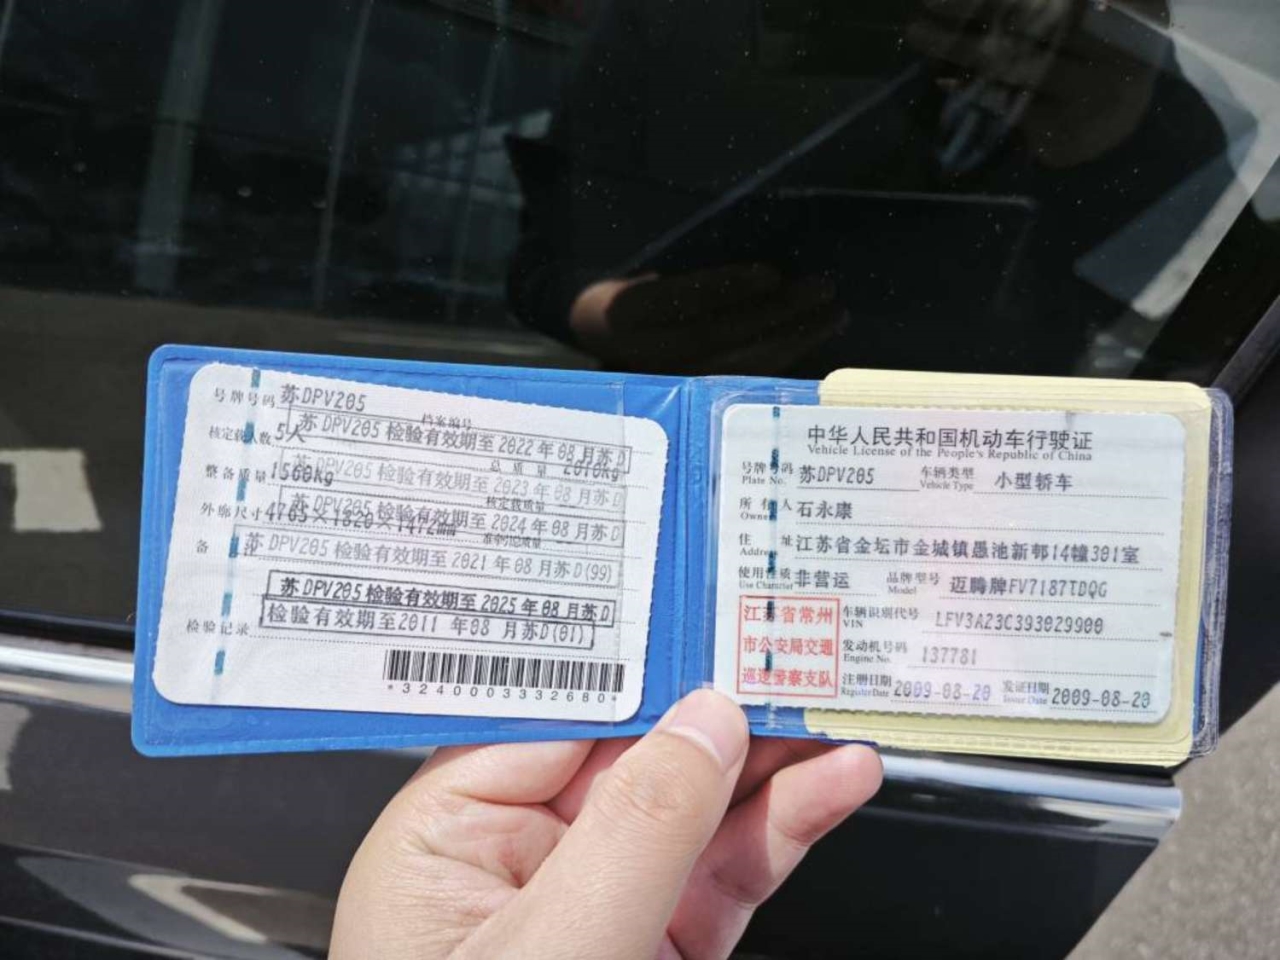 号牌号码 苏DPV205
档案编号
苏 DPV205 检验有效期至 2022 年 08 月苏 D
核定载人数 5人
总质量 2010kg
整备质量 1560kg
苏 DPV205 检验有效期至 2023 年 08 月苏 D
核定载质量
苏 DPV205 检验有效期至 2024 年 08 月苏 D
外廓尺寸 4765×1820×1472mm
准牵引总质量
备
苏 DPV205 检验有效期至 2021 年 08 月苏 D(99)
苏 DPV205 检验有效期至 2025 年 08 月苏 D
检验有效期至2011 年08 月苏D(01)
检验记录
*3240003332680*
中华人民共和国机动车行驶证
Vehicle License of the People's Republic of China
号牌号码 苏DPV205 车辆类型 小型轿车
Plate No. Vehicle Type
所有人 石永康
Owner
住址 江苏省金坛市金城镇愚池新邨14幢301室
Address
使用性质 非营运 品牌型号 迈腾牌FV7187TDQG
Use Character Model
江苏省常州
市公安局交通
巡逻警察支队
车辆识别代号 LFV3A23C393029900
VIN
发动机号码 137781
Engine No.
注册日期 2009-08-20 发证日期 2009-08-20
Register Date Issue Date